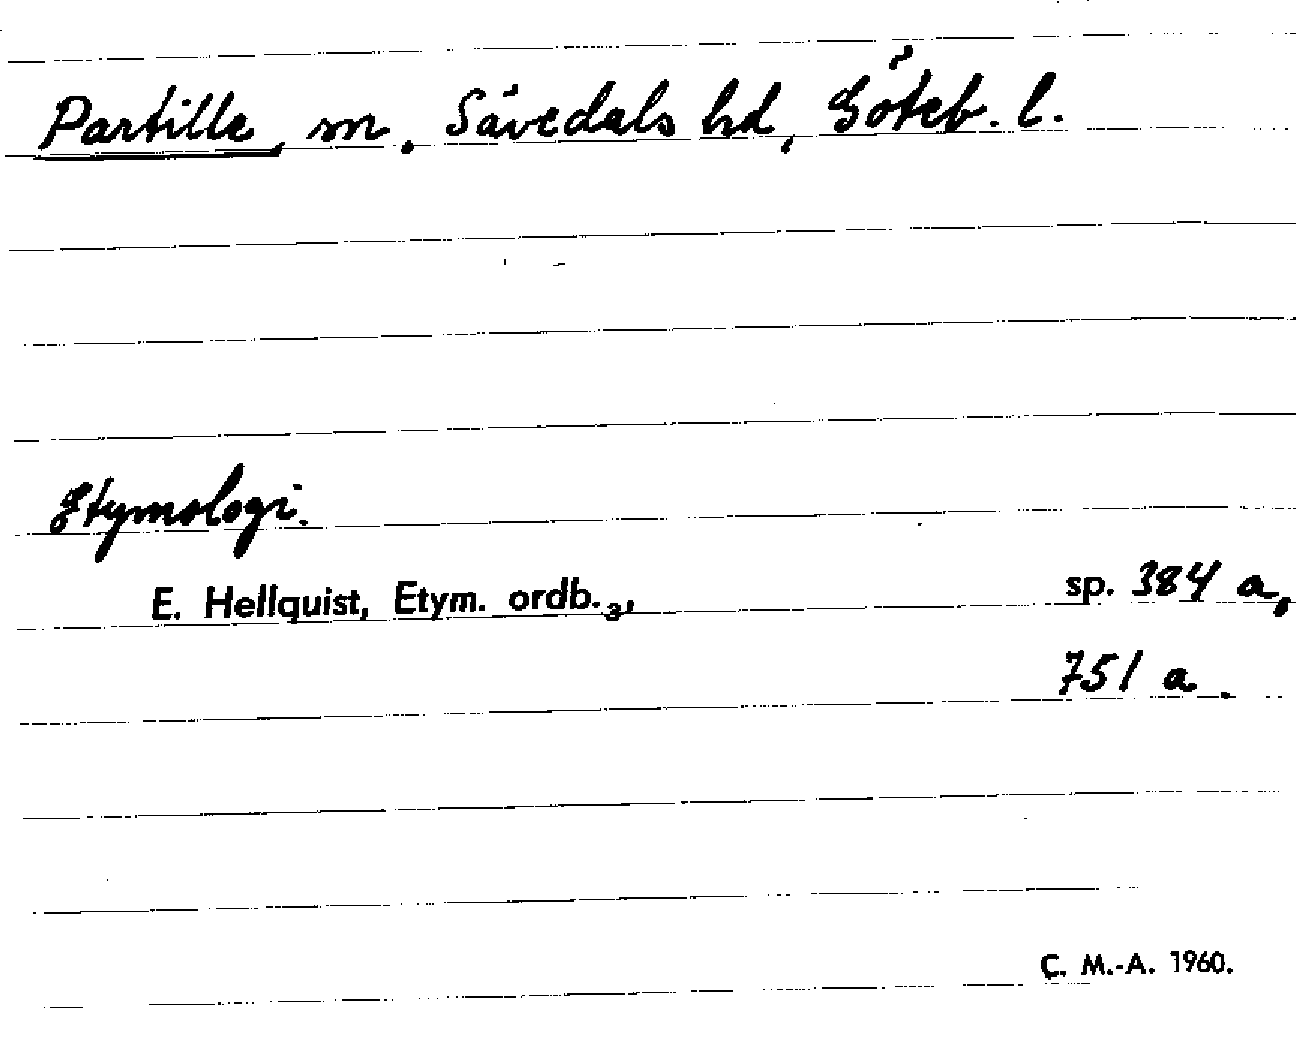 Partille, sn, Sävedals hd, Göteb. l.
Etymologi.
E. Hellquist, Etym. ordb.₃, sp. 384 a,
751 a.
C. M.-A. 1960.